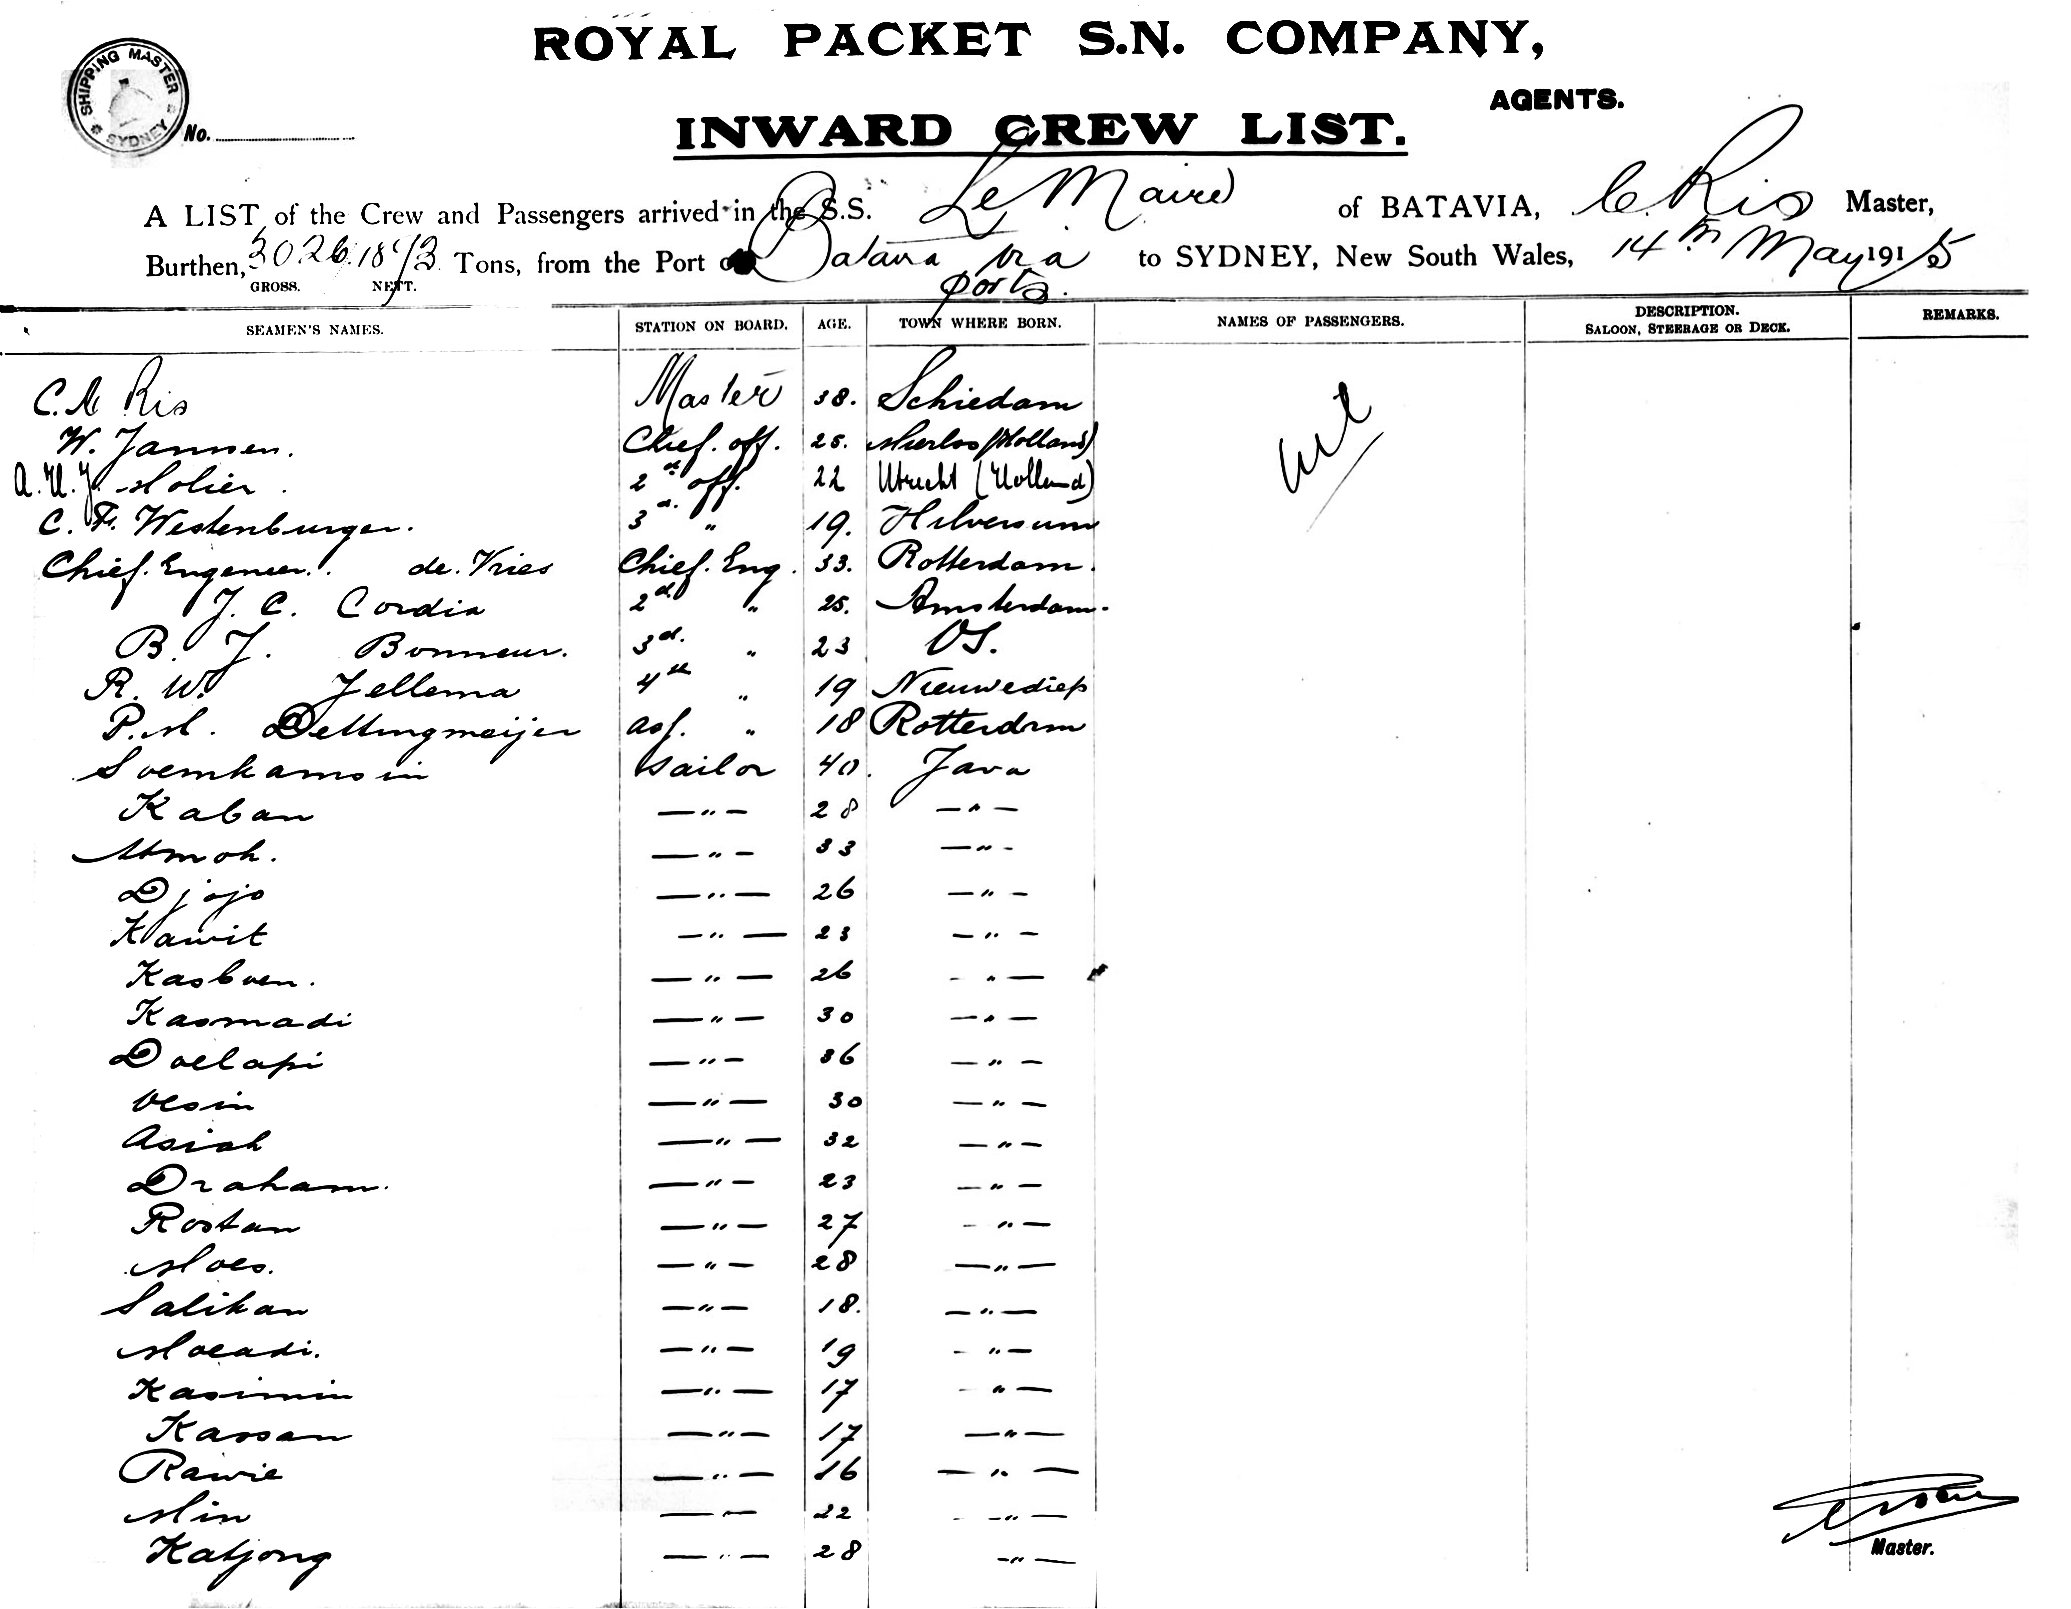 ROYAL PACKET S.N. COMPANY,
AGENTS.
SHIPPING MASTER SYDNEY
No.
INWARD CREW LIST.
A LIST of the Crew and Passengers arrived in the S.S. Le Maire of BATAVIA, C. Ris Master,
Burthen, 3026. 1843 Tons, from the Port of Batavia via ports. to SYDNEY, New South Wales, 14th May 1915
GROSS. NETT.
SEAMEN'S NAMES. STATION ON BOARD. AGE. TOWN WHERE BORN. NAMES OF PASSENGERS. DESCRIPTION. SALOON, STEERAGE OR DECK. REMARKS.
C. Ris Master 38. Schiedam nil
W. Jannen. Chief. off. 25. Mierloo (Holland)
A. H. J. Molier. 2d off. 22 Utrecht (Holland)
C. F. Westenburger. 3d. " 19. Hilversum
Chief. Engeneer. de. Vries Chief. Eng. 33. Rotterdam.
J. C. Cordia 2d " 25. Amsterdam.
B. J. Bonneur. 3d. " 23
R. W. Jellema 4th " 19 Nieuwediep
P. M. Dettingmeijer ass. " 18 Rotterdam
Soemkamsin sailor 40. Java
Kaban —"— 28 —"—
Atmoh. —"— 33 —"—
Djojo —"— 26 —"—
Kawit —"— 23 —"—
Kasboen. —"— 26 —"—
Kasmadi —"— 30 —"—
Doelapi —"— 36 —"—
Oesin —"— 30 —"—
Asiah —"— 32 —"—
Draham. —"— 23 —"—
Rostan —"— 27 —"—
Moes. —"— 28 —"—
Salikan —"— 18. —"—
Moeadi. —"— 19 —"—
Kasimin —"— 17 —"—
Kassan —"— 17 —"—
Rawie —"— 16 —"—
Min —"— 22 —"—
Katjong —"— 28 —"—
Master.